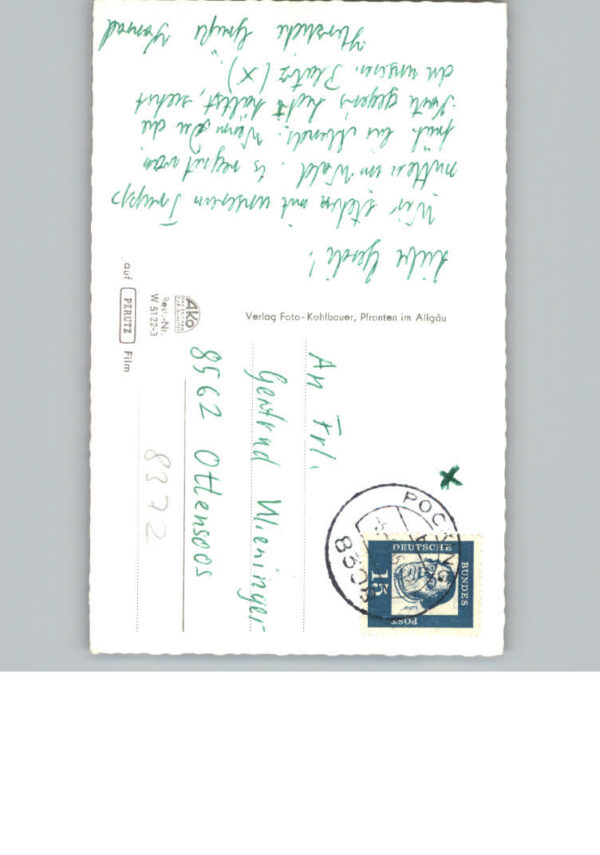 Liebe Gerdi!
Wir stehen mit unserem Trupp
mitten im Wald. Es regnet von
früh bis Abends. Wenn Du die
Karte gegens Licht hältst, siehst
du unseren Platz (X)
Herzliche Grüße Konrad
Verlag Foto-Kohlbauer, Pfronten im Allgäu
AKO
Best.-Nr.
W 5122-3
auf PERUTZ Film
An Frl.
Gertrud Wieninger
8562 Ottensoos
8372
8398
DEUTSCHE
BUNDES
POST
15
Luther